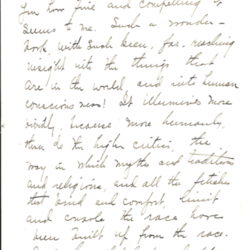 you how fine and compelling it
seems to me. Such a wonder-
book, with such keen, far-reaching
insight into the things that
are in the world and into human
consciousness! It illumines more
vividly, because more humanly,
than do the higher critics, the
way in which myths and traditions
and religions, and all the fetishes
that bind and comfort, limit
and console the race have
been built up from the race.